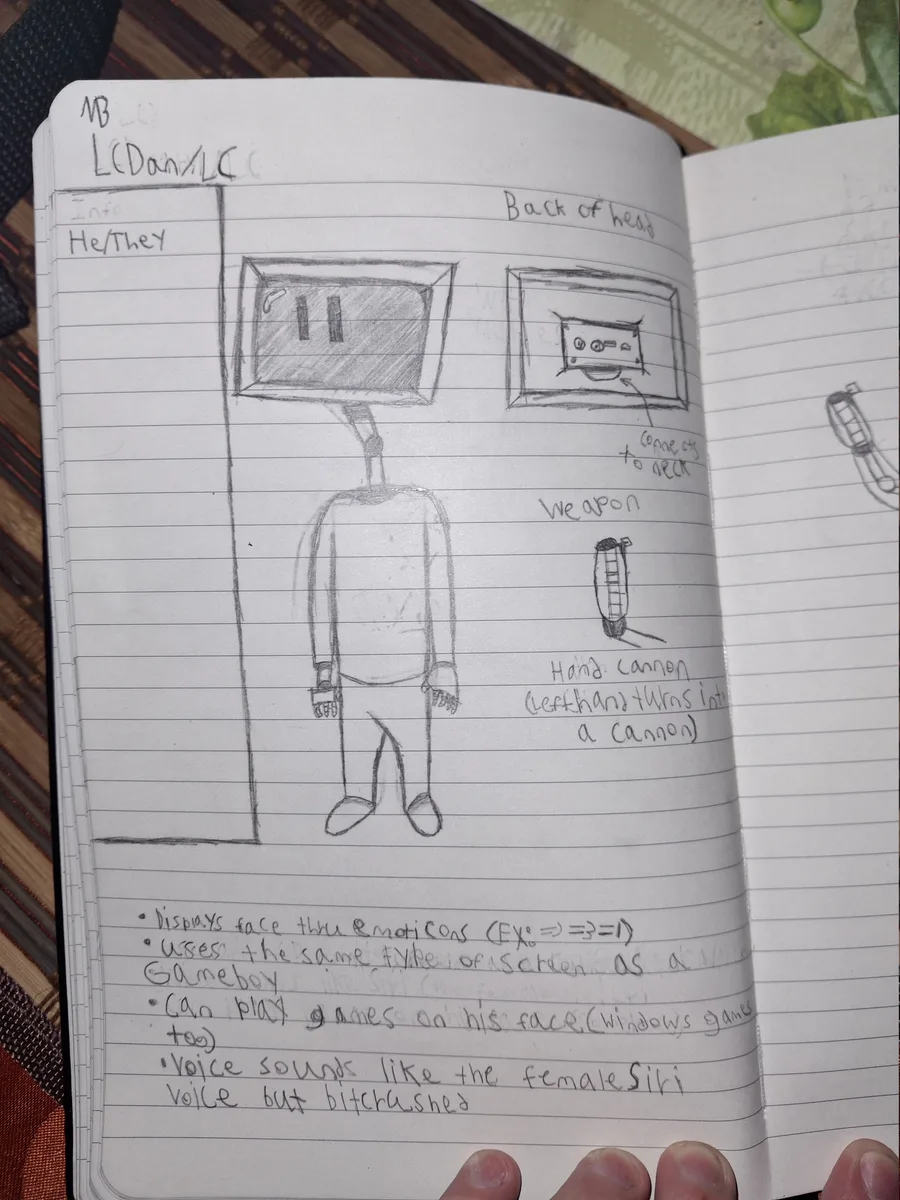 NB
LCDan/LC
Info
He/They
Back of head
connects
to neck
Weapon
Hand cannon
(Left hand turns into
a cannon)
• Displays face thru emoticons (Ex: =) =3 =1)
• uses the same type of screen as a
Gameboy
• Can play games on his face (windows games
too)
• Voice sounds like the female Siri
voice but bitcrushed